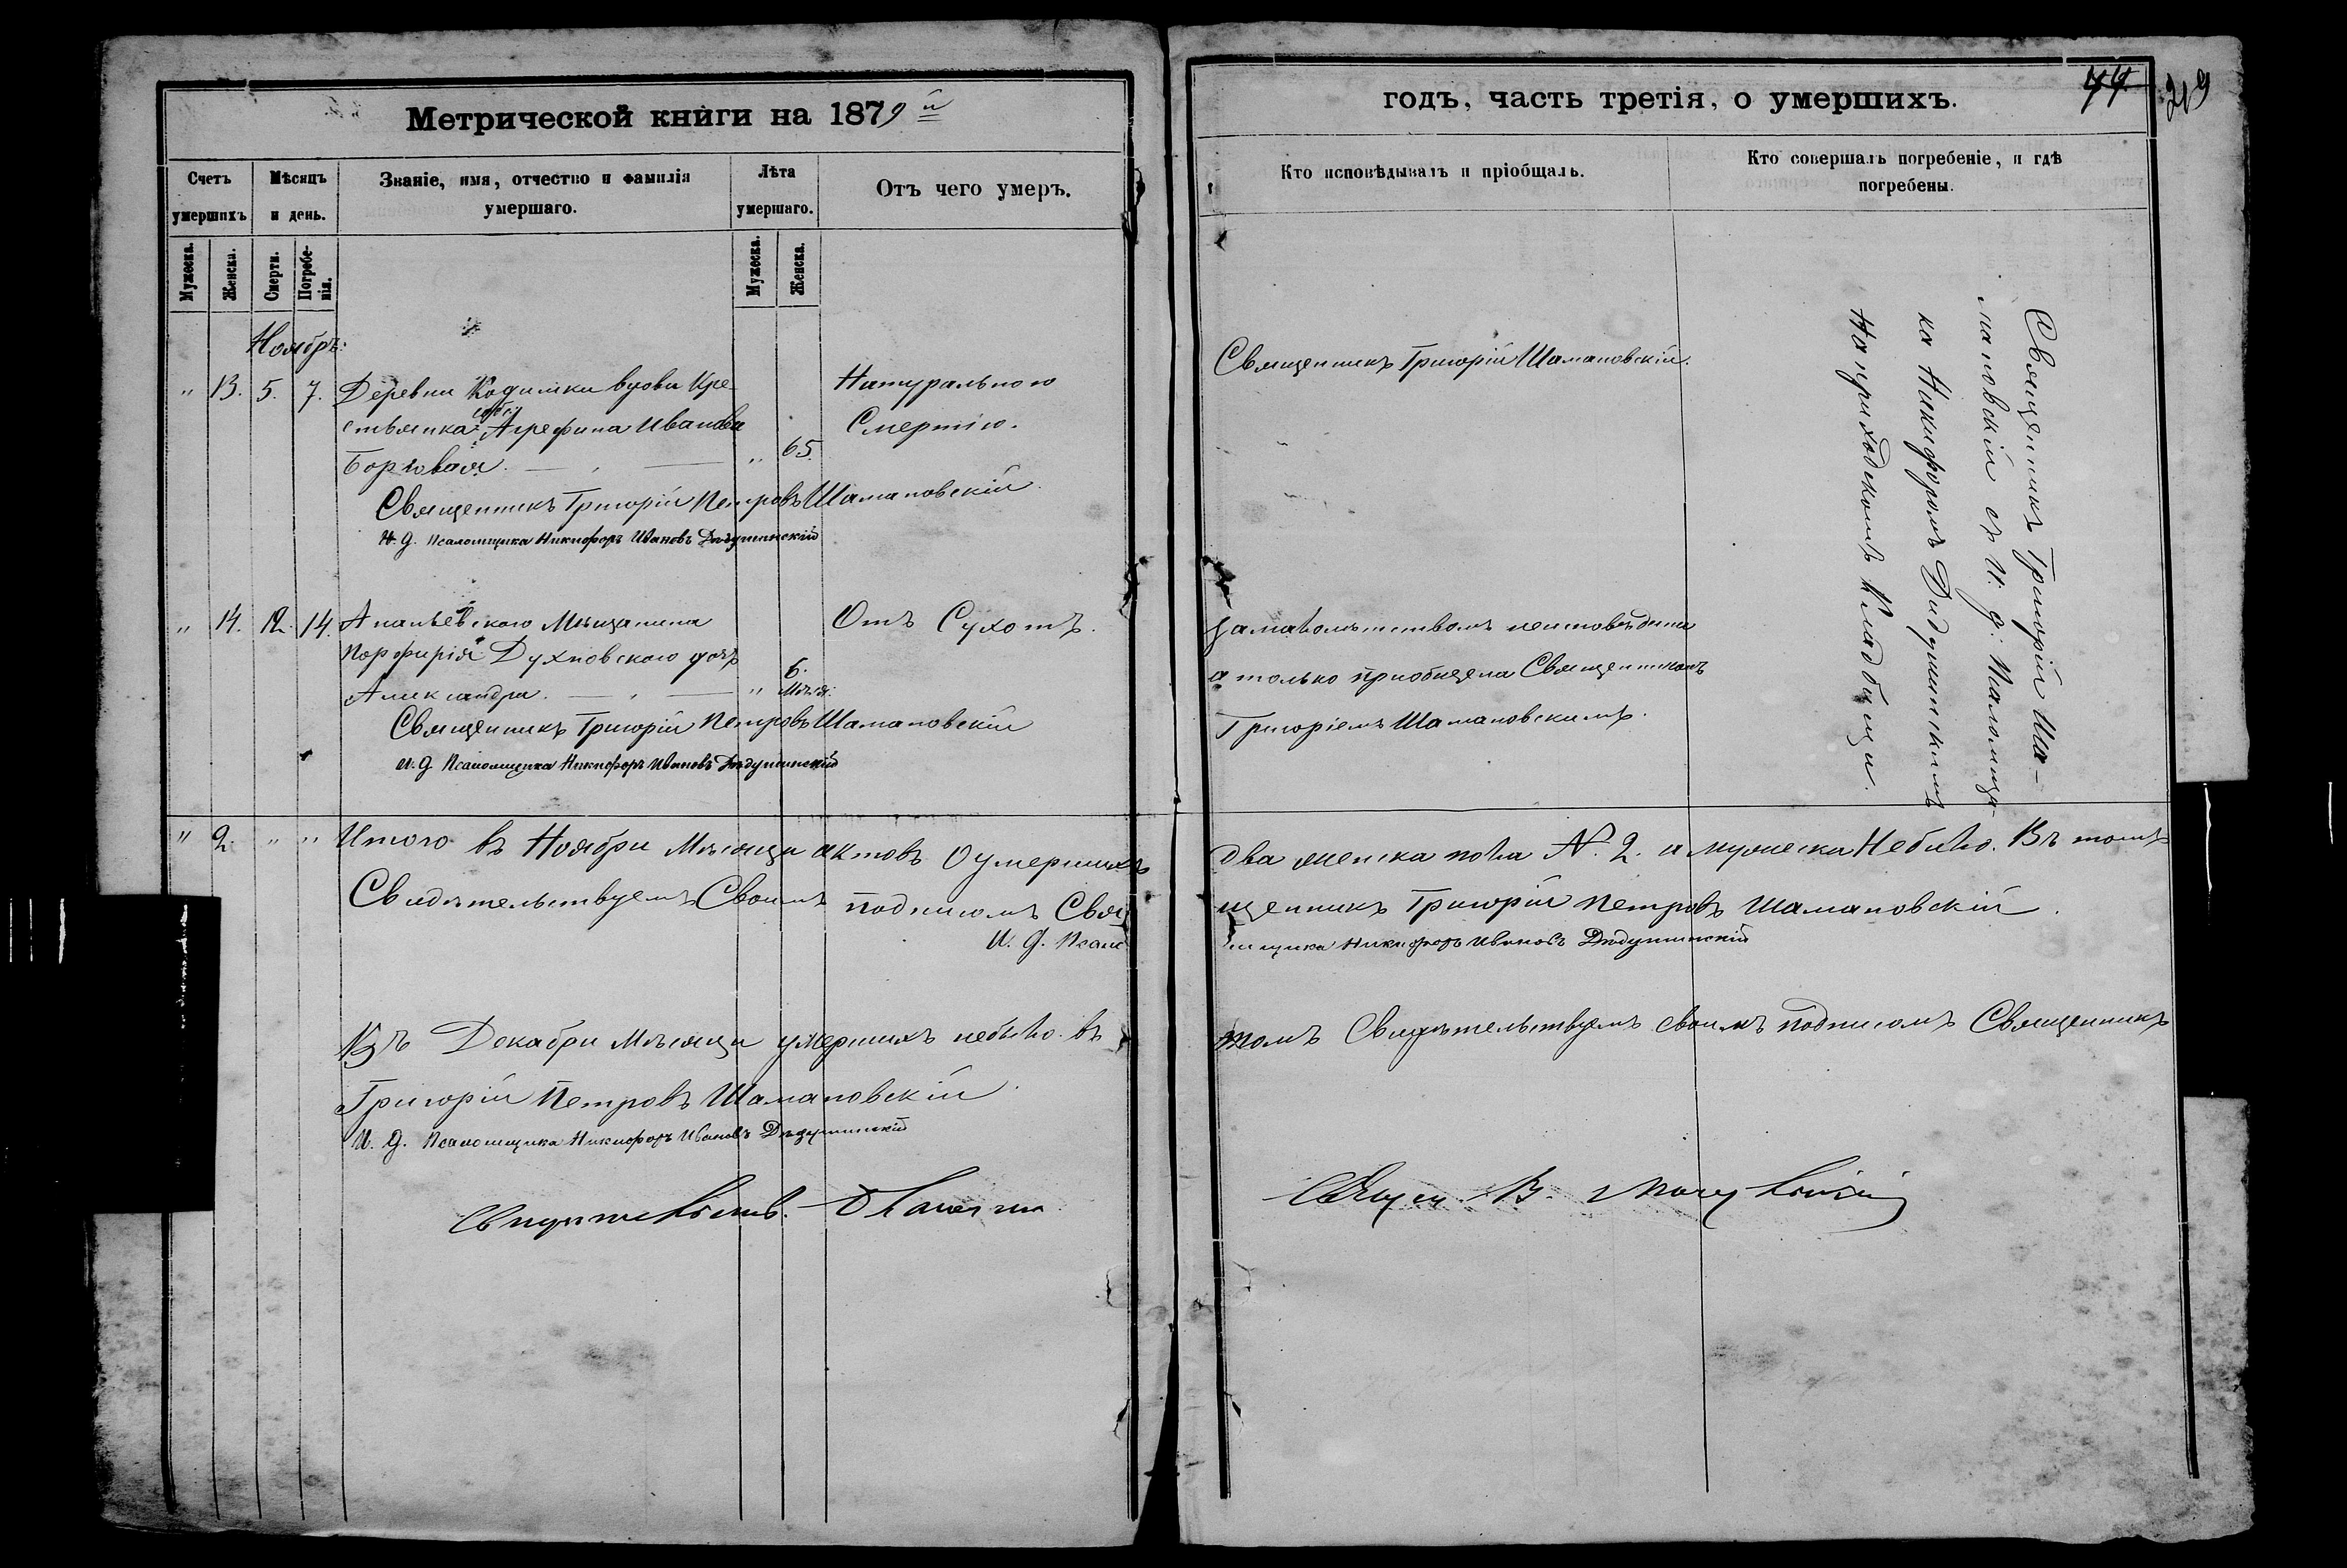 Метрической книги на 1879й
годъ, часть третія, о умершихъ.
44
219
Счетъ умершихъ
Мѣсяцъ и день.
Званіе, имя, отчество и фамилія умершаго.
Лѣта умершаго.
Отъ чего умеръ.
Кто исповѣдывалъ и пріобщалъ.
Кто совершалъ погребеніе, и гдѣ погребены.
Мужеска.
Женска.
Смерти.
Погребенія.
Мужеска.
Женска.
Ноябръ:
" 13. 5. 7. Деревни Кодимки вдова Кре-
стьянка Агрефина Иванова
" 65.
Натуральною
Смертію.
Священникъ Григорій Петровъ Шамановскій
И. д. Псаломщика Никифоръ Ивановъ Дидушинскій
" 14. 12. 14. Ананьевского Мѣщанина
Порфирія Духновского дочь
Александра. " 6. Мѣся:
Отъ Сухотъ.
Священникъ Григорій Петровъ Шамановскій
И. д. Псаломщика Никифоръ Ивановъ Дидушинскій
Священникъ Григорій Шамановскій.
замалолѣтствомъ неисповѣдана
а только пріобщена Священникомъ
Григоріемъ Шамановскимъ.
Священникъ Григорій Ша-
мановскій съ И. д. Псаломщи
ка Никифоромъ Дидушинскимъ
На приходскомъ Кладбищи.
" 2. " " Итого въ Ноябри Мѣсяци актовъ О умершихъ два женска пола №. 2. а мужеска Небыло. Въ томъ
Свидѣтельствуемъ Своимъ подписомъ Священникъ Григорій Петровъ Шамановскій.
И. д. Псаломщика Никифоръ Ивановъ Дидушинскій
Въ Декабри Мѣсяци умершихъ небыло. въ томъ Свидѣтельствуемъ своимъ подписомъ Священникъ
Григорій Петровъ Шамановскій
И. д. Псаломщика Никифоръ Ивановъ Дидушинскій